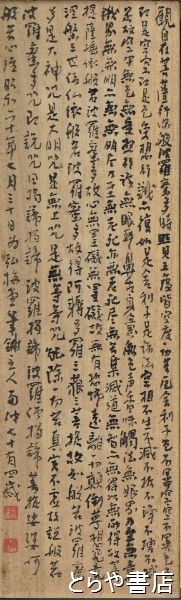 觀自在菩薩行深般波羅蜜多時照見五蘊皆空度一切苦厄舍利子色不異空空不異色色即是空空
即是色受想行識亦復如是舍利子是諸法空相不生不滅不垢不淨不增不減
是故空中無色無受想行識無眼耳鼻舌身意無色聲香味觸法無眼界乃至無意
識界無無明亦無無明盡乃至無老死亦無老死盡無苦集滅道無智亦無得以無所得故菩
提薩埵依般若波羅蜜多故心無罣礙無罣礙故無有恐怖遠離一切顛倒夢想究竟
涅槃三世諸佛依般若波羅蜜多故得阿耨多羅三藐三菩提故知般若波羅蜜
多是大神咒是大明咒是無上咒是無等等咒能除一切苦真實不虛故說般若
波羅蜜多咒即說咒曰揭諦揭諦波羅揭諦波羅僧揭諦菩提娑婆呵
般若心經 昭和六十年七月三十日為 主人 七十有四歳
とらや書店